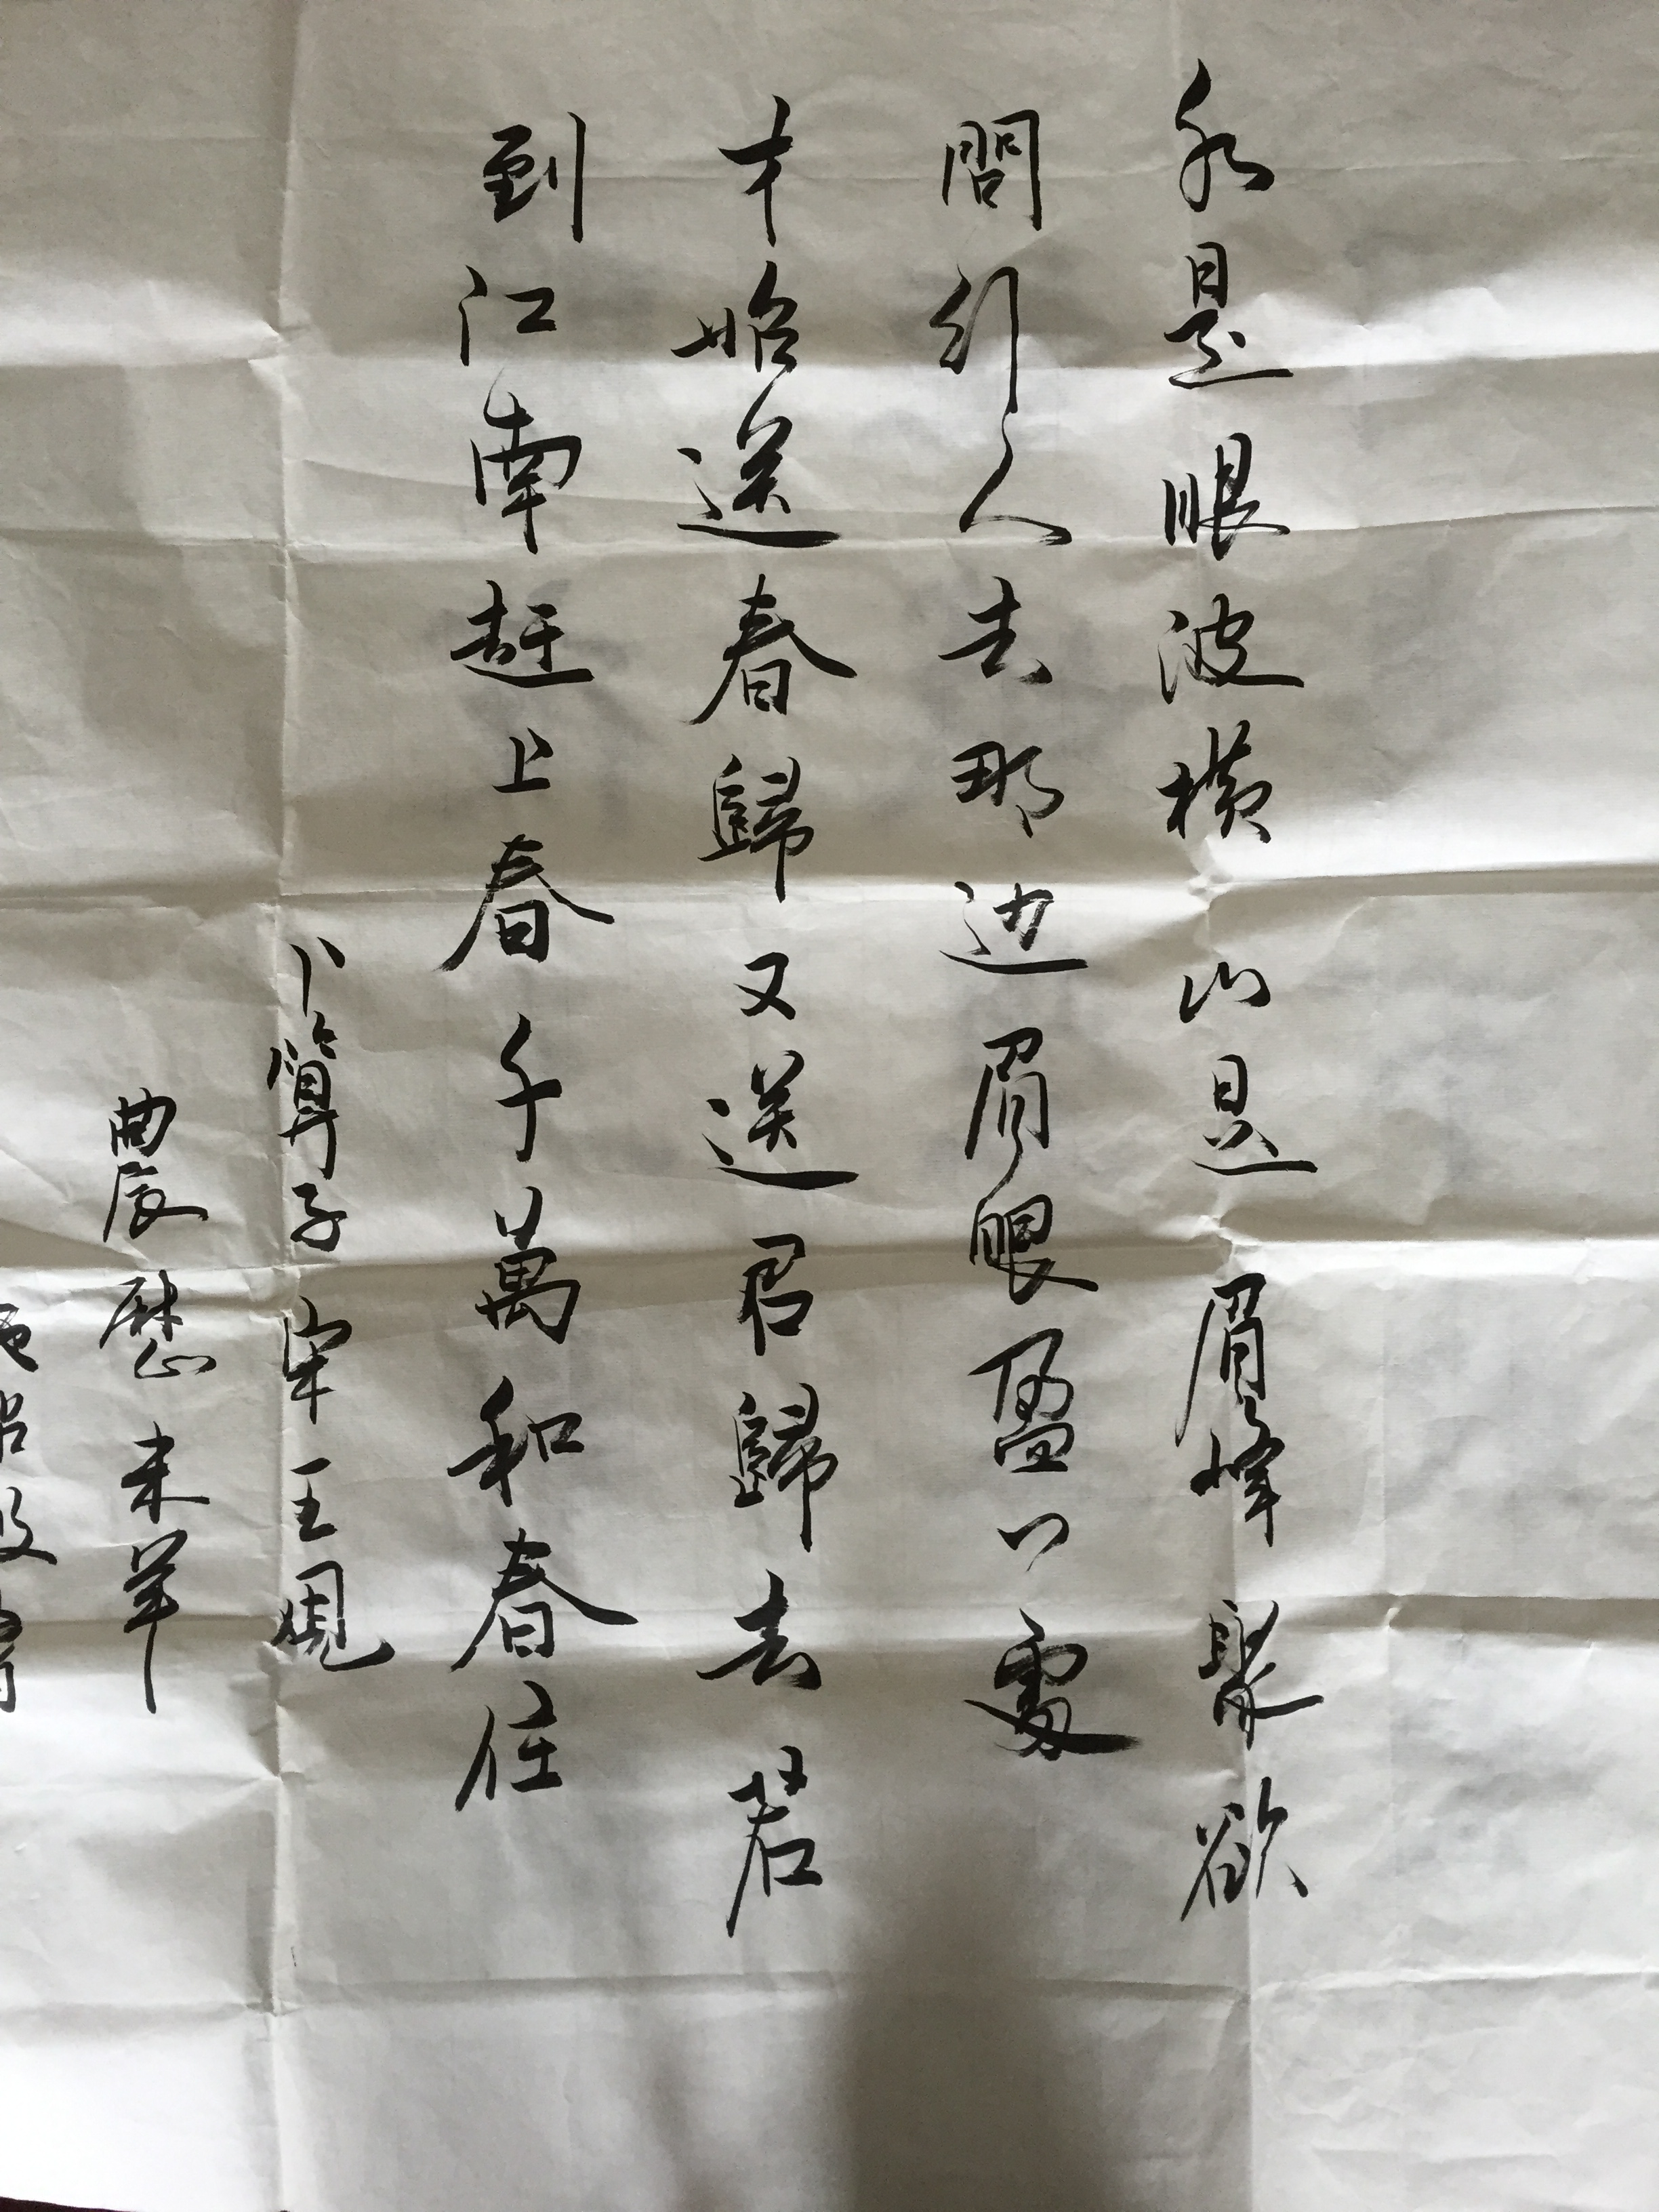 水是眼波橫山是眉峰聚欲
問行人去那边眉眼盈々處
才始送春歸又送君歸去若
到江南赶上春千萬和春住
卜算子 宋 王观
農歷 未羊